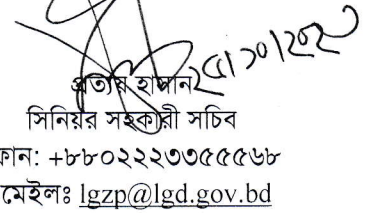 প্রত্যয় হাসান
সিনিয়র সহকারী সচিব
ফোন: +৮৮০২২২৩৩৫৫৫৬৮
মেইলঃ lgzp@lgd.gov.bd